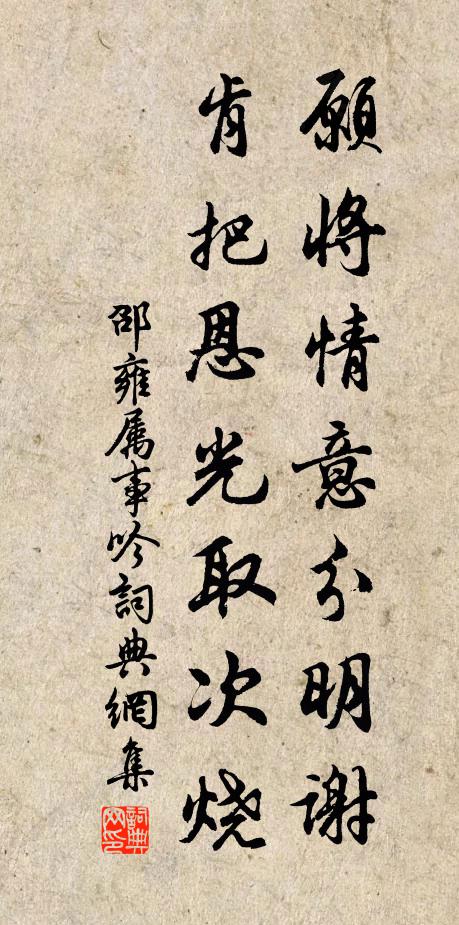 願将情意分明谢
肯把恩光取次燒
邵雍属事吟詞典網集
詞典网印